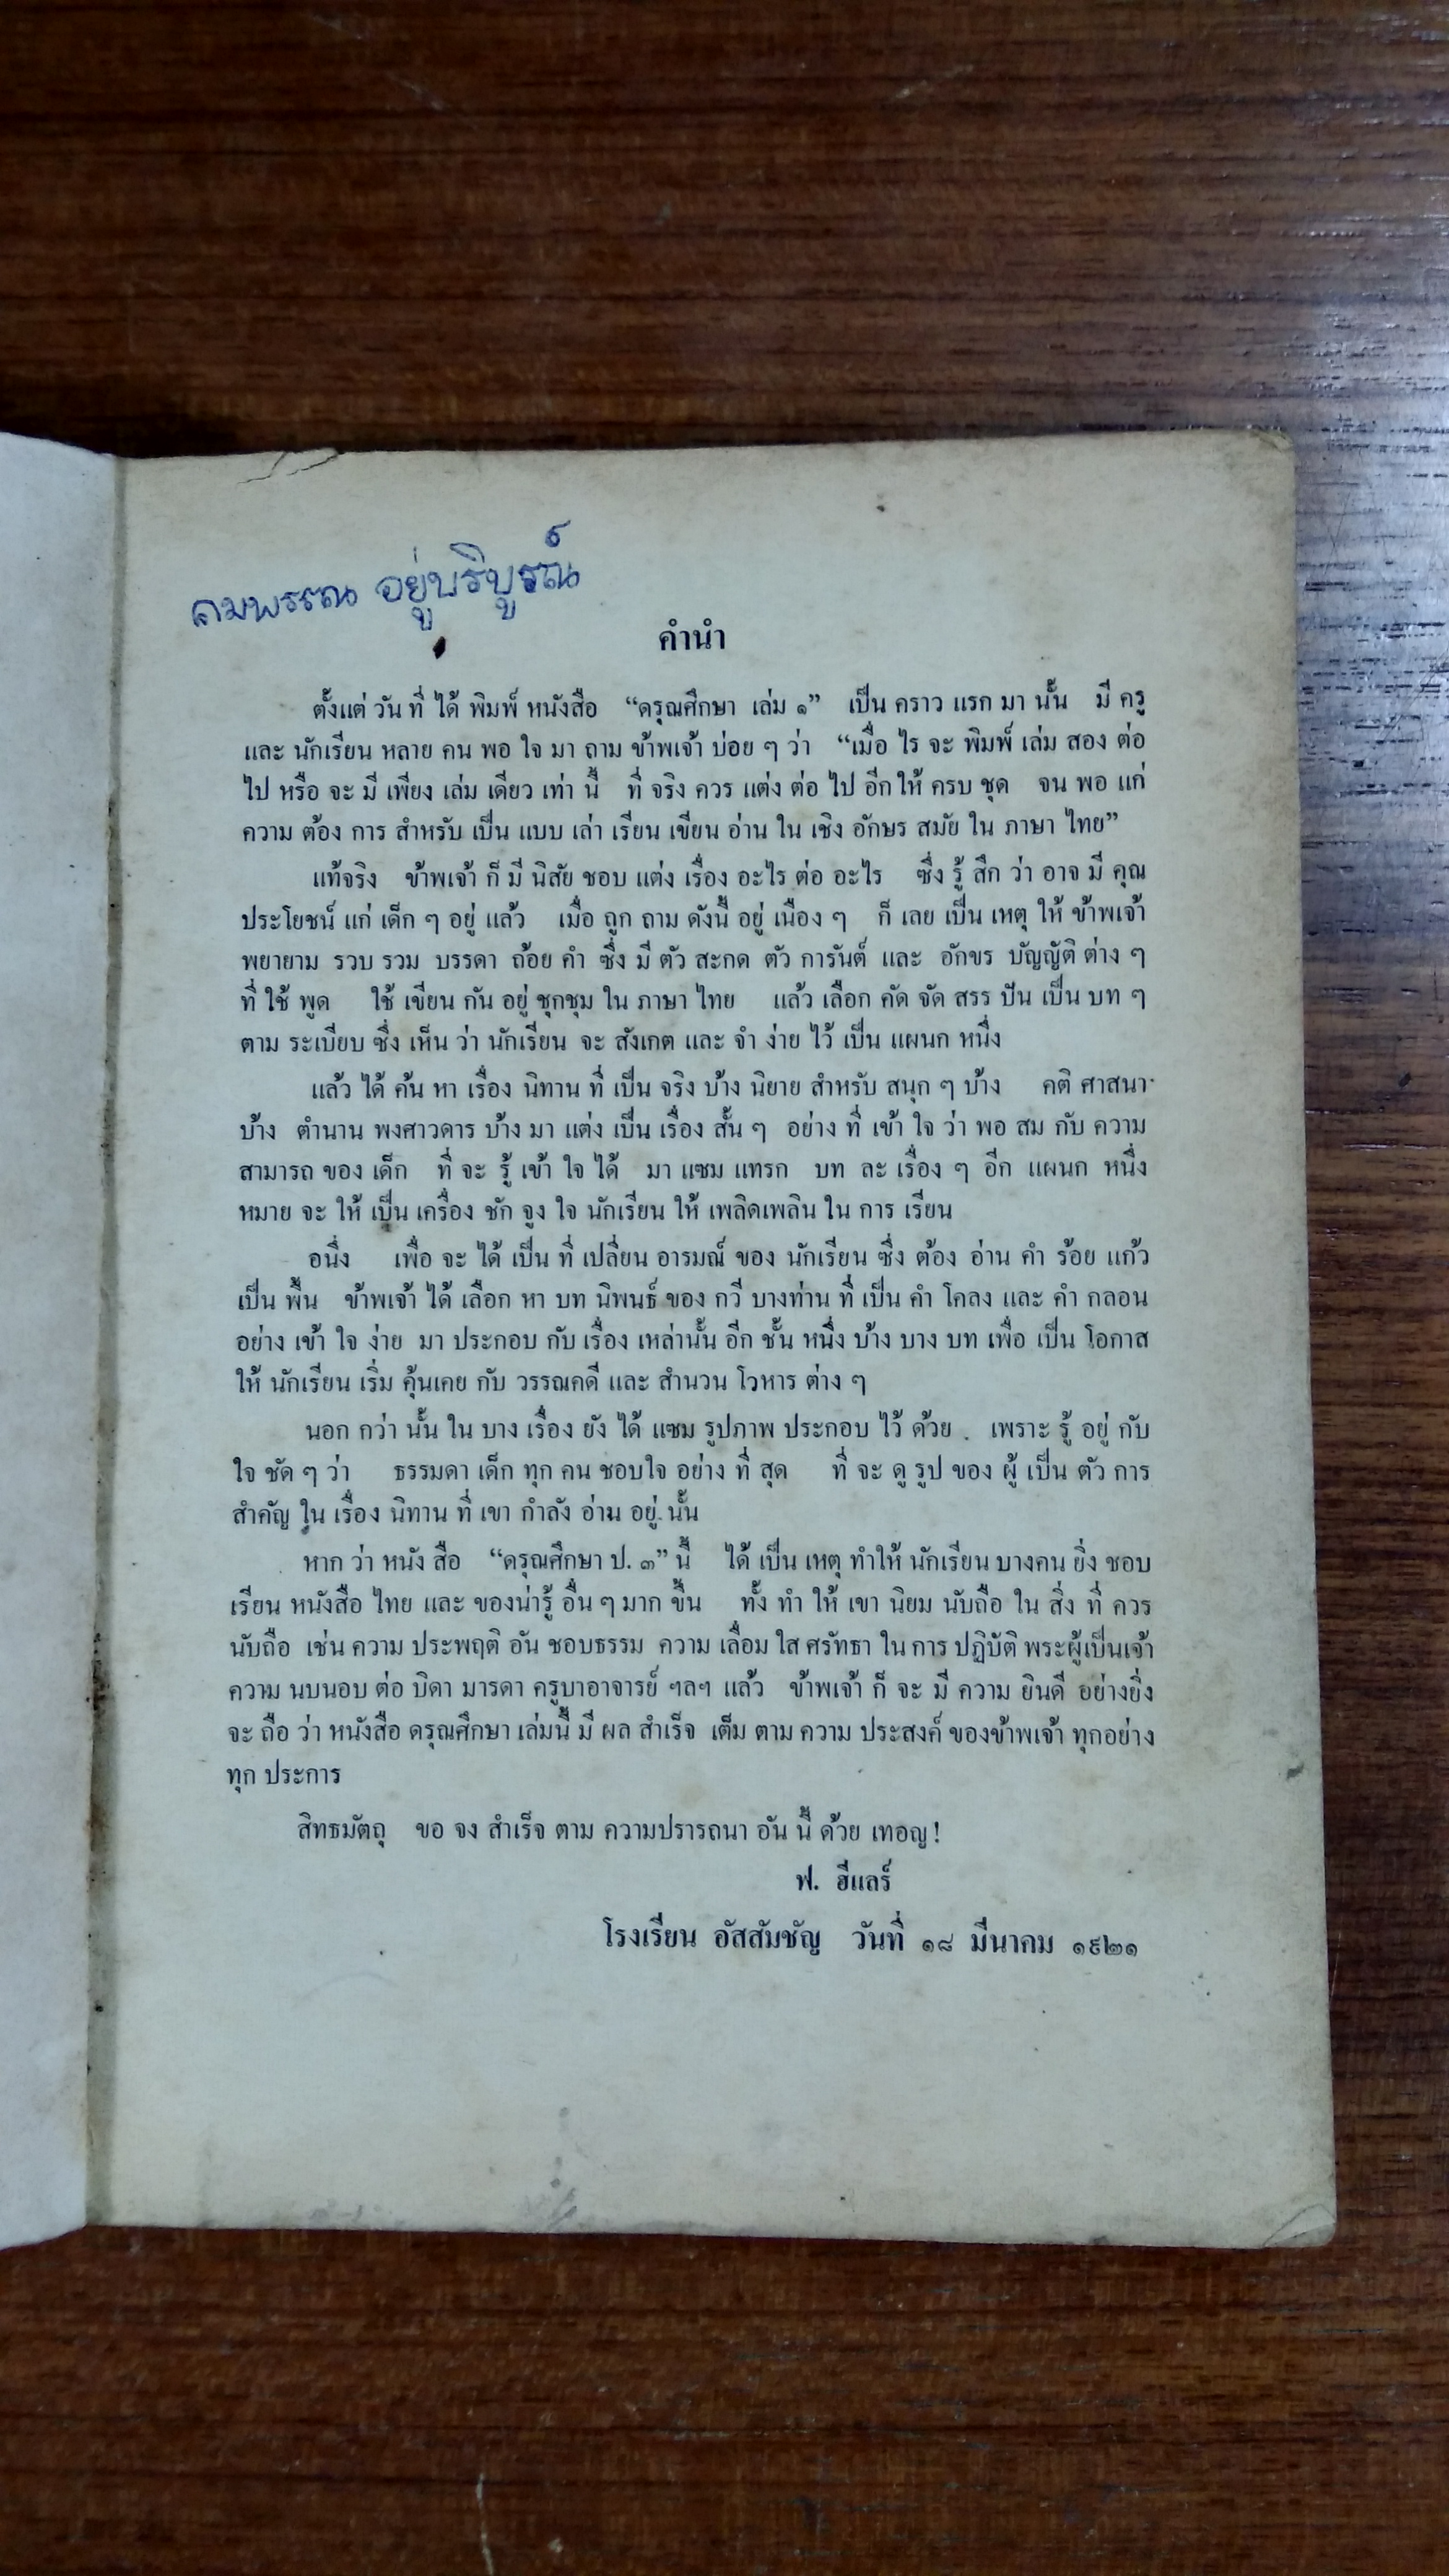 ถมพรรณ อยู่บริบูรณ์
คำนำ
ตั้งแต่ วัน ที่ ได้ พิมพ์ หนังสือ “ดรุณศึกษา เล่ม ๑” เป็น คราว แรก มา นั้น มี ครู
และ นักเรียน หลาย คน พอ ใจ มา ถาม ข้าพเจ้า บ่อย ๆ ว่า “เมื่อ ไร จะ พิมพ์ เล่ม สอง ต่อ
ไป หรือ จะ มี เพียง เล่ม เดียว เท่า นี้ ที่ จริง ควร แต่ง ต่อ ไป อีก ให้ ครบ ชุด จน พอ แก่
ความ ต้อง การ สำหรับ เป็น แบบ เล่า เรียน เขียน อ่าน ใน เชิง อักษร สมัย ใน ภาษา ไทย”
แท้จริง ข้าพเจ้า ก็ มี นิสัย ชอบ แต่ง เรื่อง อะไร ต่อ อะไร ซึ่ง รู้ สึก ว่า อาจ มี คุณ
ประโยชน์ แก่ เด็ก ๆ อยู่ แล้ว เมื่อ ถูก ถาม ดังนี้ อยู่ เนือง ๆ ก็ เลย เป็น เหตุ ให้ ข้าพเจ้า
พยายาม รวบ รวม บรรดา ถ้อย คำ ซึ่ง มี ตัว สะกด ตัว การันต์ และ อักขร บัญญัติ ต่าง ๆ
ที่ ใช้ พูด ใช้ เขียน กัน อยู่ ชุกชุม ใน ภาษา ไทย แล้ว เลือก คัด จัด สรร ปัน เป็น บท ๆ
ตาม ระเบียบ ซึ่ง เห็น ว่า นักเรียน จะ สังเกต และ จำ ง่าย ไว้ เป็น แผนก หนึ่ง
แล้ว ได้ ค้น หา เรื่อง นิทาน ที่ เป็น จริง บ้าง นิยาย สำหรับ สนุก ๆ บ้าง คติ ศาสนา
บ้าง ตำนาน พงศาวดาร บ้าง มา แต่ง เป็น เรื่อง สั้น ๆ อย่าง ที่ เข้า ใจ ว่า พอ สม กับ ความ
สามารถ ของ เด็ก ที่ จะ รู้ เข้า ใจ ได้ มา แซม แทรก บท ละ เรื่อง ๆ อีก แผนก หนึ่ง
หมาย จะ ให้ เป็น เครื่อง ชัก จูง ใจ นักเรียน ให้ เพลิดเพลิน ใน การ เรียน
อนึ่ง เพื่อ จะ ได้ เป็น ที่ เปลี่ยน อารมณ์ ของ นักเรียน ซึ่ง ต้อง อ่าน คำ ร้อย แก้ว
เป็น พื้น ข้าพเจ้า ได้ เลือก หา บท นิพนธ์ ของ กวี บางท่าน ที่ เป็น คำ โคลง และ คำ กลอน
อย่าง เข้า ใจ ง่าย มา ประกอบ กับ เรื่อง เหล่านั้น อีก ชั้น หนึ่ง บ้าง บาง บท เพื่อ เป็น โอกาส
ให้ นักเรียน เริ่ม คุ้นเคย กับ วรรณคดี และ สำนวน โวหาร ต่าง ๆ
นอก กว่า นั้น ใน บาง เรื่อง ยัง ได้ แซม รูปภาพ ประกอบ ไว้ ด้วย เพราะ รู้ อยู่ กับ
ใจ ชัด ๆ ว่า ธรรมดา เด็ก ทุก คน ชอบใจ อย่าง ที่ สุด ที่ จะ ดู รูป ของ ผู้ เป็น ตัว การ
สำคัญ ใน เรื่อง นิทาน ที่ เขา กำลัง อ่าน อยู่ นั้น
หาก ว่า หนัง สือ “ดรุณศึกษา ป. ๓” นี้ ได้ เป็น เหตุ ทำให้ นักเรียน บางคน ยิ่ง ชอบ
เรียน หนังสือ ไทย และ ของน่ารู้ อื่น ๆ มาก ขึ้น ทั้ง ทำ ให้ เขา นิยม นับถือ ใน สิ่ง ที่ ควร
นับถือ เช่น ความ ประพฤติ อัน ชอบธรรม ความ เลื่อม ใส ศรัทธา ใน การ ปฏิบัติ พระผู้เป็นเจ้า
ความ นบนอบ ต่อ บิดา มารดา ครูบาอาจารย์ ฯลฯ แล้ว ข้าพเจ้า ก็ จะ มี ความ ยินดี อย่างยิ่ง
จะ ถือ ว่า หนังสือ ดรุณศึกษา เล่มนี้ มี ผล สำเร็จ เต็ม ตาม ความ ประสงค์ ของข้าพเจ้า ทุกอย่าง
ทุก ประการ
สิทธมัตถุ ขอ จง สำเร็จ ตาม ความปรารถนา อัน นี้ ด้วย เทอญ!
ฟ. ฮีแลร์
โรงเรียน อัสสัมชัญ วันที่ ๑๘ มีนาคม ๑๙๒๑